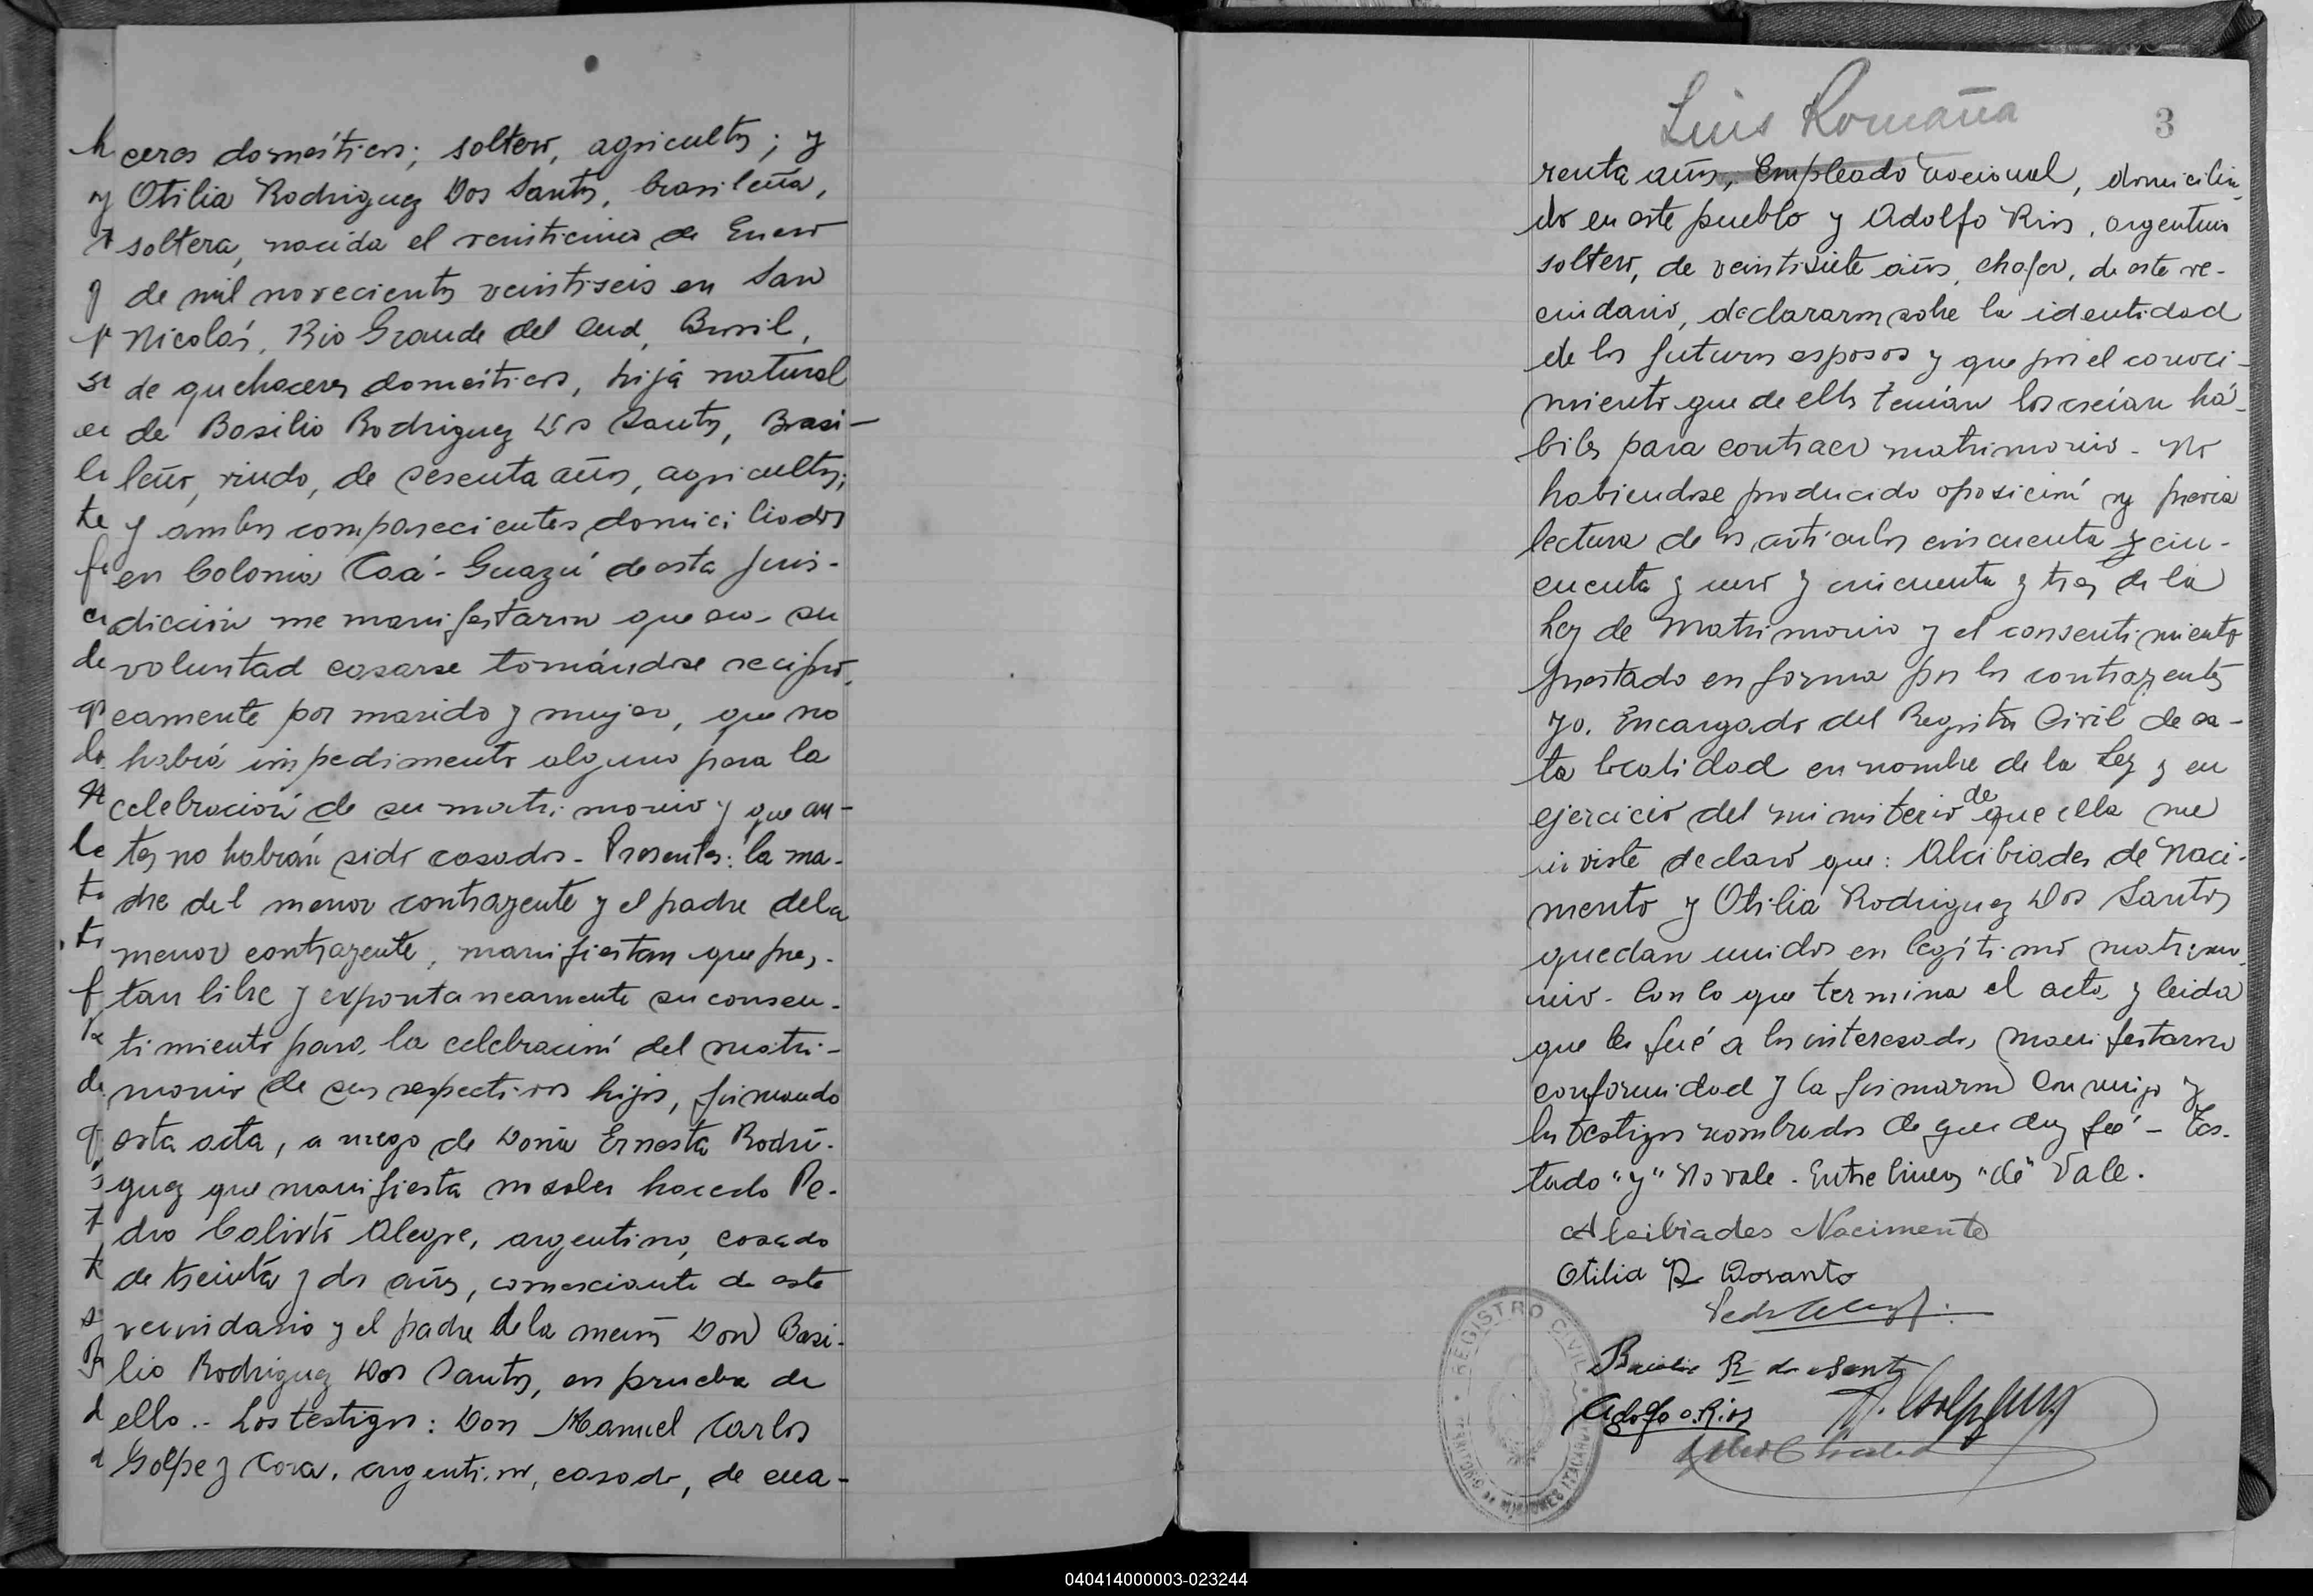 ceres domésticos; soltero, agricultor; y
y Otilia Rodriguez Dos Santos, brasileña,
soltera, nacida el veinticinco de Enero
de mil novecientos veintiseis en San
Nicolás, Rio Grande del Sud, Brasil,
de quehaceres domésticos, hija natural
de Basilio Rodriguez Dos Santos, Brasi-
leño, viudo, de sesenta años, agricultor;
y ambos comparecientes domiciliados
en Colonia Caá-Guazú de esta juris-
dicción me manifestaron que era su
voluntad casarse tomándose recipro-
camente por marido y mujer, que no
había impedimento alguno para la
celebración de su matrimonio y que an-
tes no habían sido casados - Presentes: la ma-
dre del menor contrayente y el padre de la
menor contrayente, manifiestan que pres-
tan libre y expontaneamente su consen-
timiento para la celebración del matri-
monio de sus respectivos hijos, firmando
esta acta, a ruego de Doña Ernesta Rodri-
guez que manifiesta no saber hacerlo Pe-
dro Calixto Alegre, argentino, casado
de treinta y dos años, comerciante de este
vecindario y el padre de la menor Don Basi-
lio Rodriguez Dos Santos, en prueba de
ello.- Los testigos: Don Manuel Carlos
Golpe y Cora, argentino, casado, de cua-
Luis Romaña
3
renta años, Empleado nacional, domicilia-
do en este pueblo y Adolfo Rios, argentino
soltero, de veintisiete años, chofer, de este ve-
cindario, declararon sobre la identidad
de los futuros esposos y que por el conoci-
miento que de ellos tenían los creían há-
biles para contraer matrimonio - No
habiendose producido oposición y previa
lectura de los artículos cincuenta y cin-
cuenta y uno y cincuenta y tres de la
Ley de Matrimonio y el consentimiento
prestado en forma por los contrayentes
yo, Encargado del Registro Civil de es-
ta localidad en nombre de la Ley y en
ejercicio del ministerio de que ella me
inviste declaro que: Alcibiades de Naci-
mento y Otilia Rodriguez Dos Santos
quedan unidos en legítimo matrimo-
nio - Con lo que termina el acto y leida
que les fué a los interesados manifestaron
conformidad y la firmaron conmigo y
los testigos nombrados de que doy fé - Tes-
tado "y" No vale - Entre lineas "de" Vale.
Alcibiades Nacimento
Otilia R Dosanto
Basilio R de Santos
Adolfo O. Rios
REGISTRO CIVIL
TERRITORIO DE MISIONES
040414000003-023244